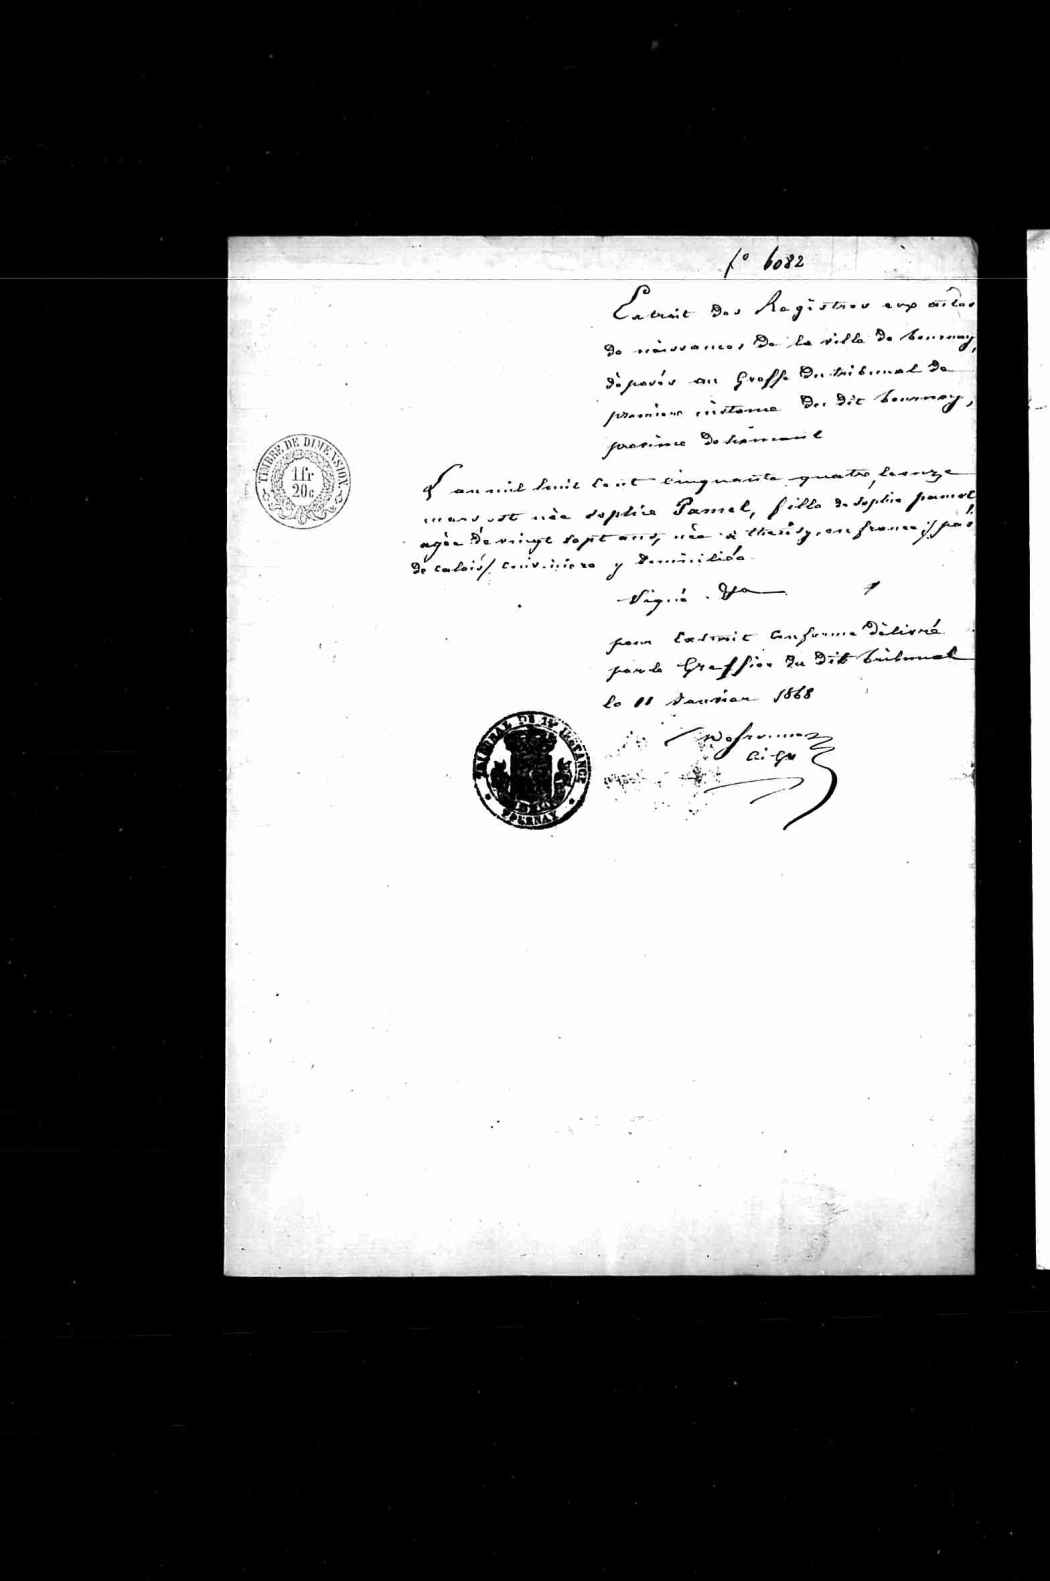 fo 6082
Extrait des Registres aux actes
de naissances de la ville de tournay,
déposés au Greffe du tribunal de
première instance du dit tournay,
province de hainaut
L'an mil huit Cent Cinquante quatre, le onze
mars est née Sophie Pamel, fille de Sophie pamel
agée de vingt sept ans, née à en france (pas
de calais) Cuisinière y domiciliée
Signé
pour Extrait Conforme délivré
par le Greffier du dit tribunal
le 11 Janvier 1868
TIMBRE DE DIMENSION.
1fr
20c
TRIBUNAL DE 1re INSTANCE
DE
TOURNAY